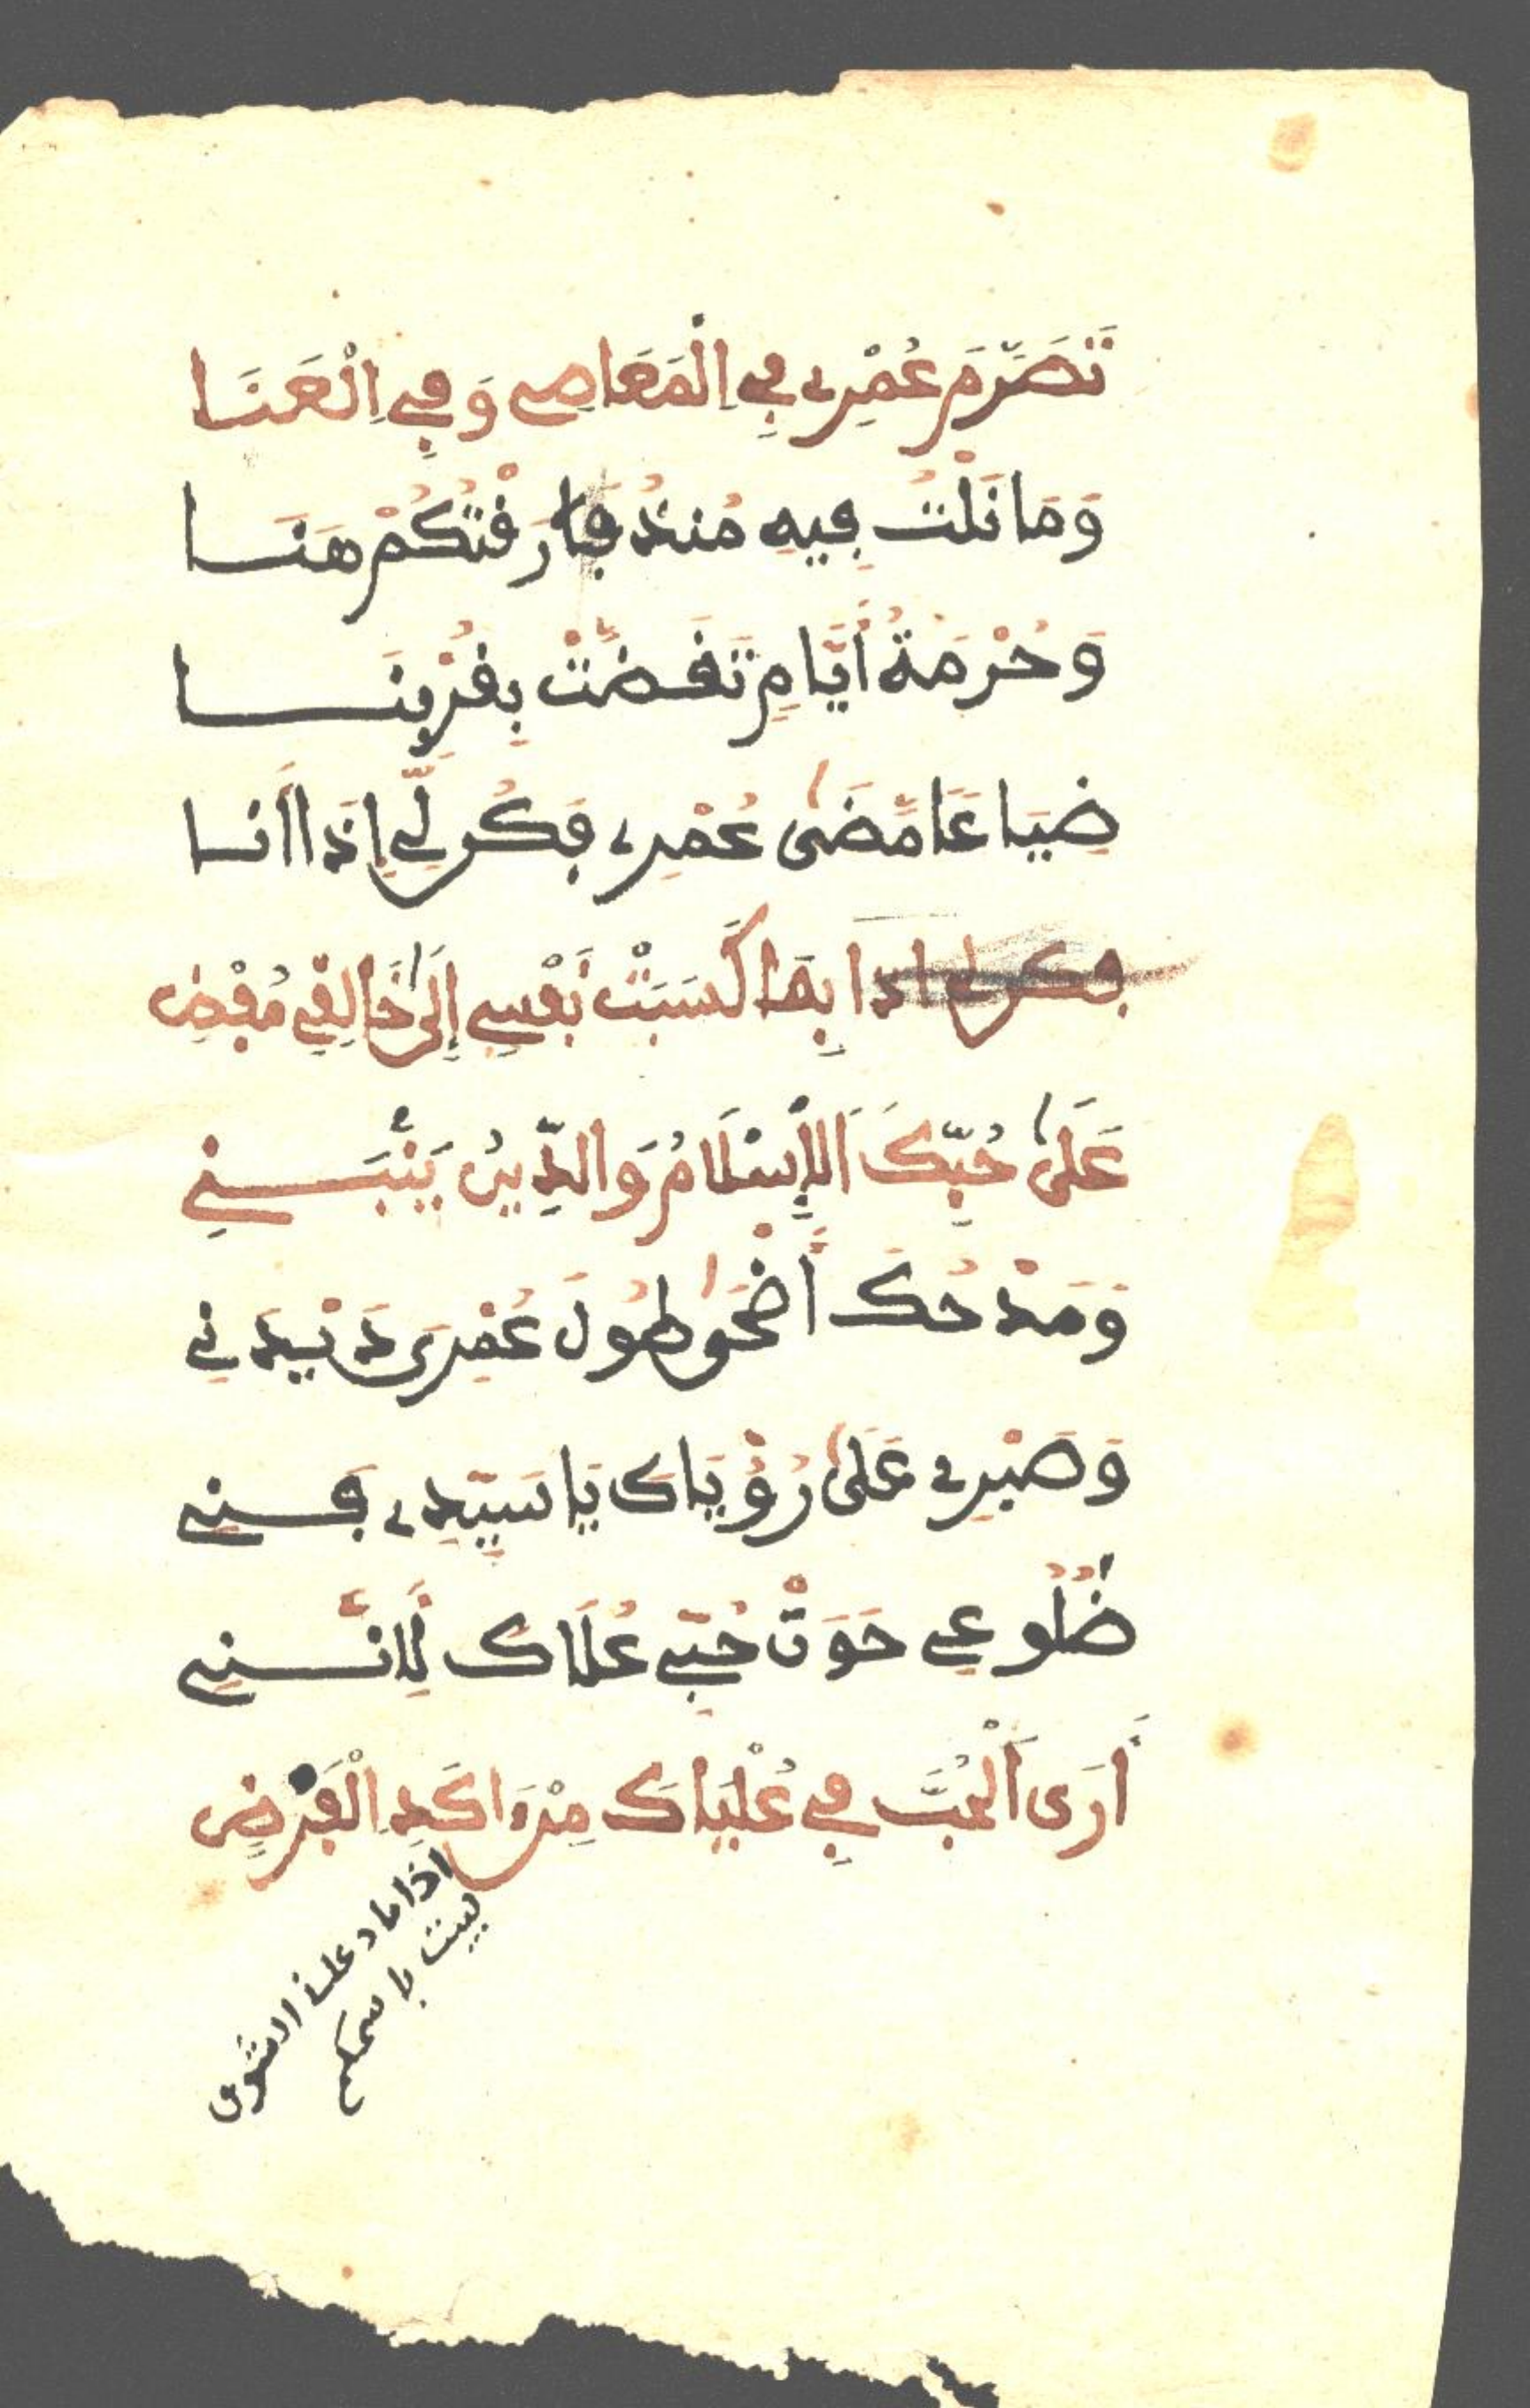 تَصَرَّمَ عُمْرِي فِي اِلْمَعَاصِي وَفِي اِلْعَنَا
وَمَا نَلْتُ فِيهِ مُنْذُ فَارَقْتُكُمْ هَنَا
وَحُرْمَةُ أَيَّامٍ تَقَضَّتْ بِقُرْبِنَا
ضِيَاعًا مَّضَىٰ عُمْرِي فَكُن لِّي إِذَا أَنَا
بِمَا كَسَبَتْ نَفْسِي إِلَىٰ خَالِقِي مُفْضِ
عَلَىٰ حُبِّكَ اَلْإِسْلَامُ وَالدِّينُ يَنْبَنِي
وَمَدْحُكَ أَضْحَىٰ طُولَ عُمْرِي دَيْدَنِي
وَصَبْرِي عَلَىٰ رُؤْيَاكَ يَا سَيِّدِي فَنِي
ضُلُوعِي حَوَتْ حُبِّي عُلَاكَ لِأَنَّنِي
أَرَى اَلْحُبَّ فِي عُلْيَاكَ مِنْ اَكَدِ اِلْفَرْضِ
اذا ما دعانا الشوق
بيت باسمكم